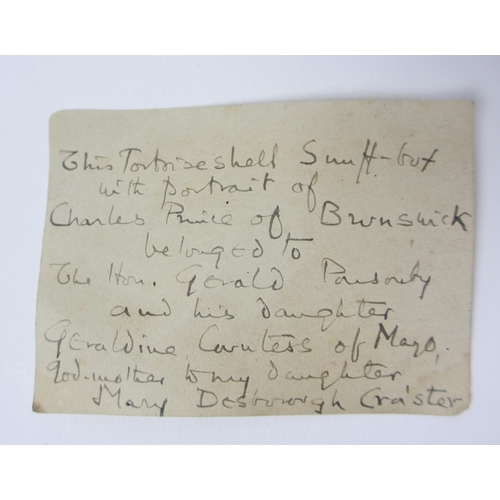 This Tortoiseshell Snuff-box
with portrait of
Charles Prince of Brunswick
belonged to
The Hon. Gerald Ponsonby
and his daughter
Geraldine, Countess of Mayo,
god-mother to my daughter
Mary Desborough Cra'ster